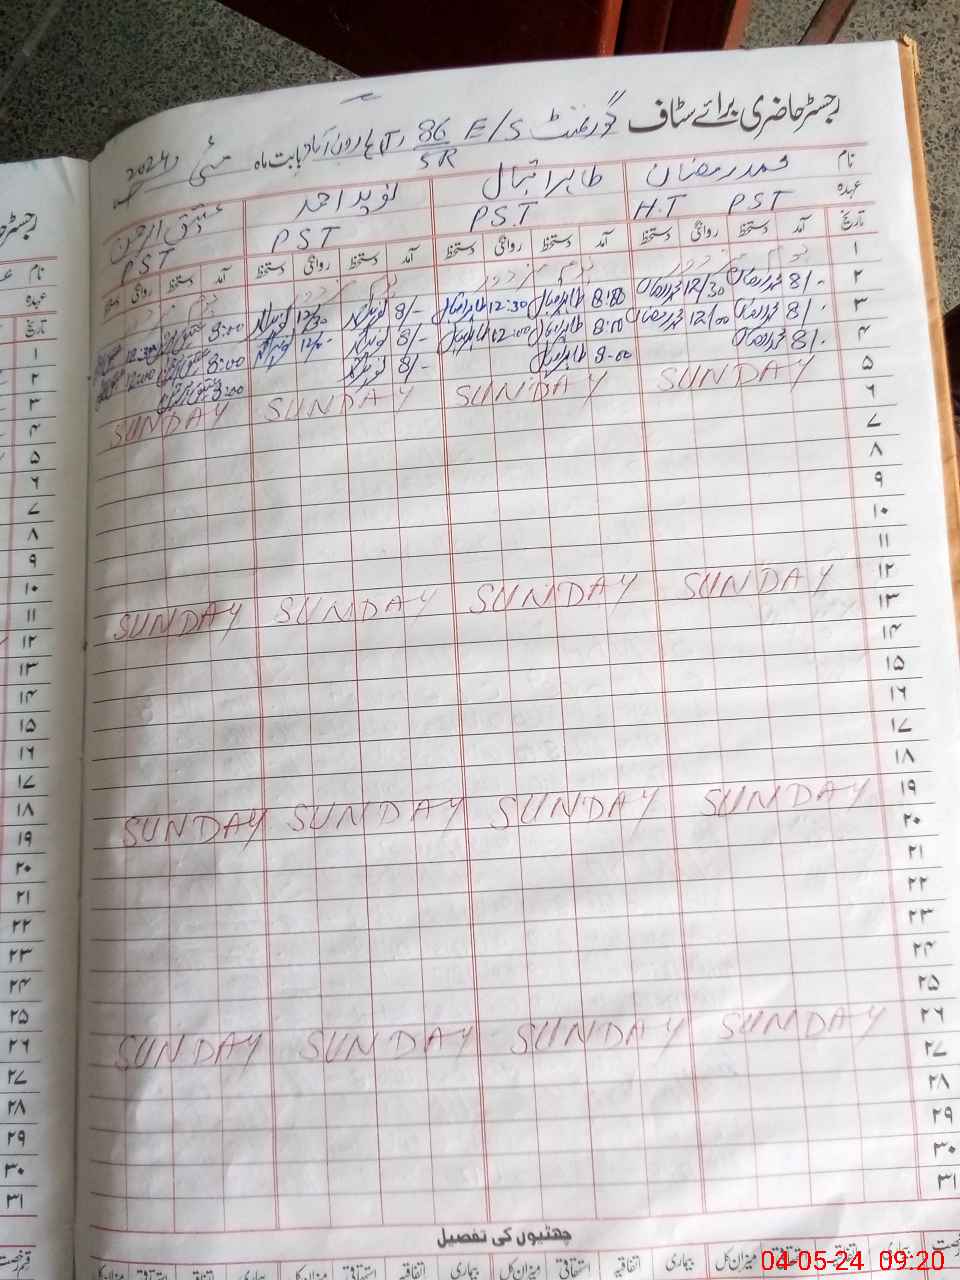 رجسٹر حاضری برائے سٹاف گورنمنٹ E/S 86/5R ہارون آباد بابت ماہ مئی 2024ء
نام محمد رمضان طاہر اقبال نوید احمد عتیق الرحمن
عہدہ H.T PST PS.T PST PST
تاریخ آمد دستخط روانگی دستخط آمد دستخط روانگی دستخط آمد دستخط روانگی دستخط آمد دستخط روانگی دستخط
۱ یوم مزدور
۲ 8/- محمد رمضان 12/30 محمد رمضان 8:00 طاہر اقبال 12:30 طاہر اقبال 8/- 12/30 8:00 12:30
۳ 8/- محمد رمضان 12/00 محمد رمضان 8:00 طاہر اقبال 12:00 طاہر اقبال 8/- 8:00 12:00
۴ 8/- محمد رمضان 8:00 طاہر اقبال 8/- 8:00
۵ SUNDAY SUNDAY SUNDAY SUNDAY
۶
۷
۸
۹
۱۰
۱۱
۱۲ SUNDAY SUNDAY SUNDAY SUNDAY
۱۳
۱۴
۱۵
۱۶
۱۷
۱۸
۱۹ SUNDAY SUNDAY SUNDAY SUNDAY
۲۰
۲۱
۲۲
۲۳
۲۴
۲۵
۲۶ SUNDAY SUNDAY SUNDAY SUNDAY
۲۷
۲۸
۲۹
۳۰
۳۱
چھٹیوں کی تفصیل
بیماری اتفاقیہ استحقاقی میزان کل بیماری اتفاقیہ استحقاقی میزان کل بیماری اتفاقیہ استحقاقی میزان کل
04-05-24 09:20